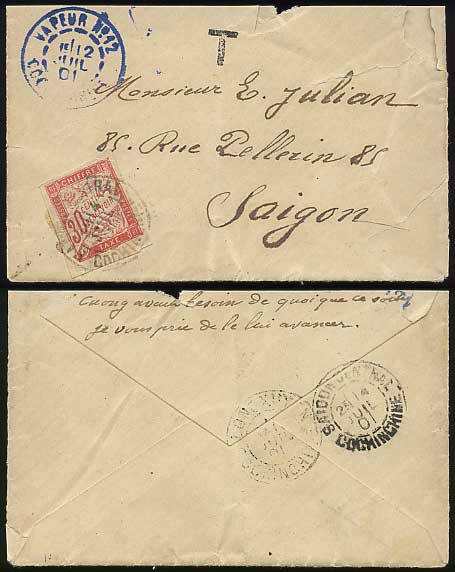 VAPEUR No 12
12
JUIL
01
T
Monsieur E. Julian
85. Rue Pellerin 85
Saigon
CHIFFRE
30
TAXE
avait besoin de quoique ce soit
je vous prie de le lui avancer.
SAIGON CENTRAL
2E 14
JUIL
01
COCHINCHINE